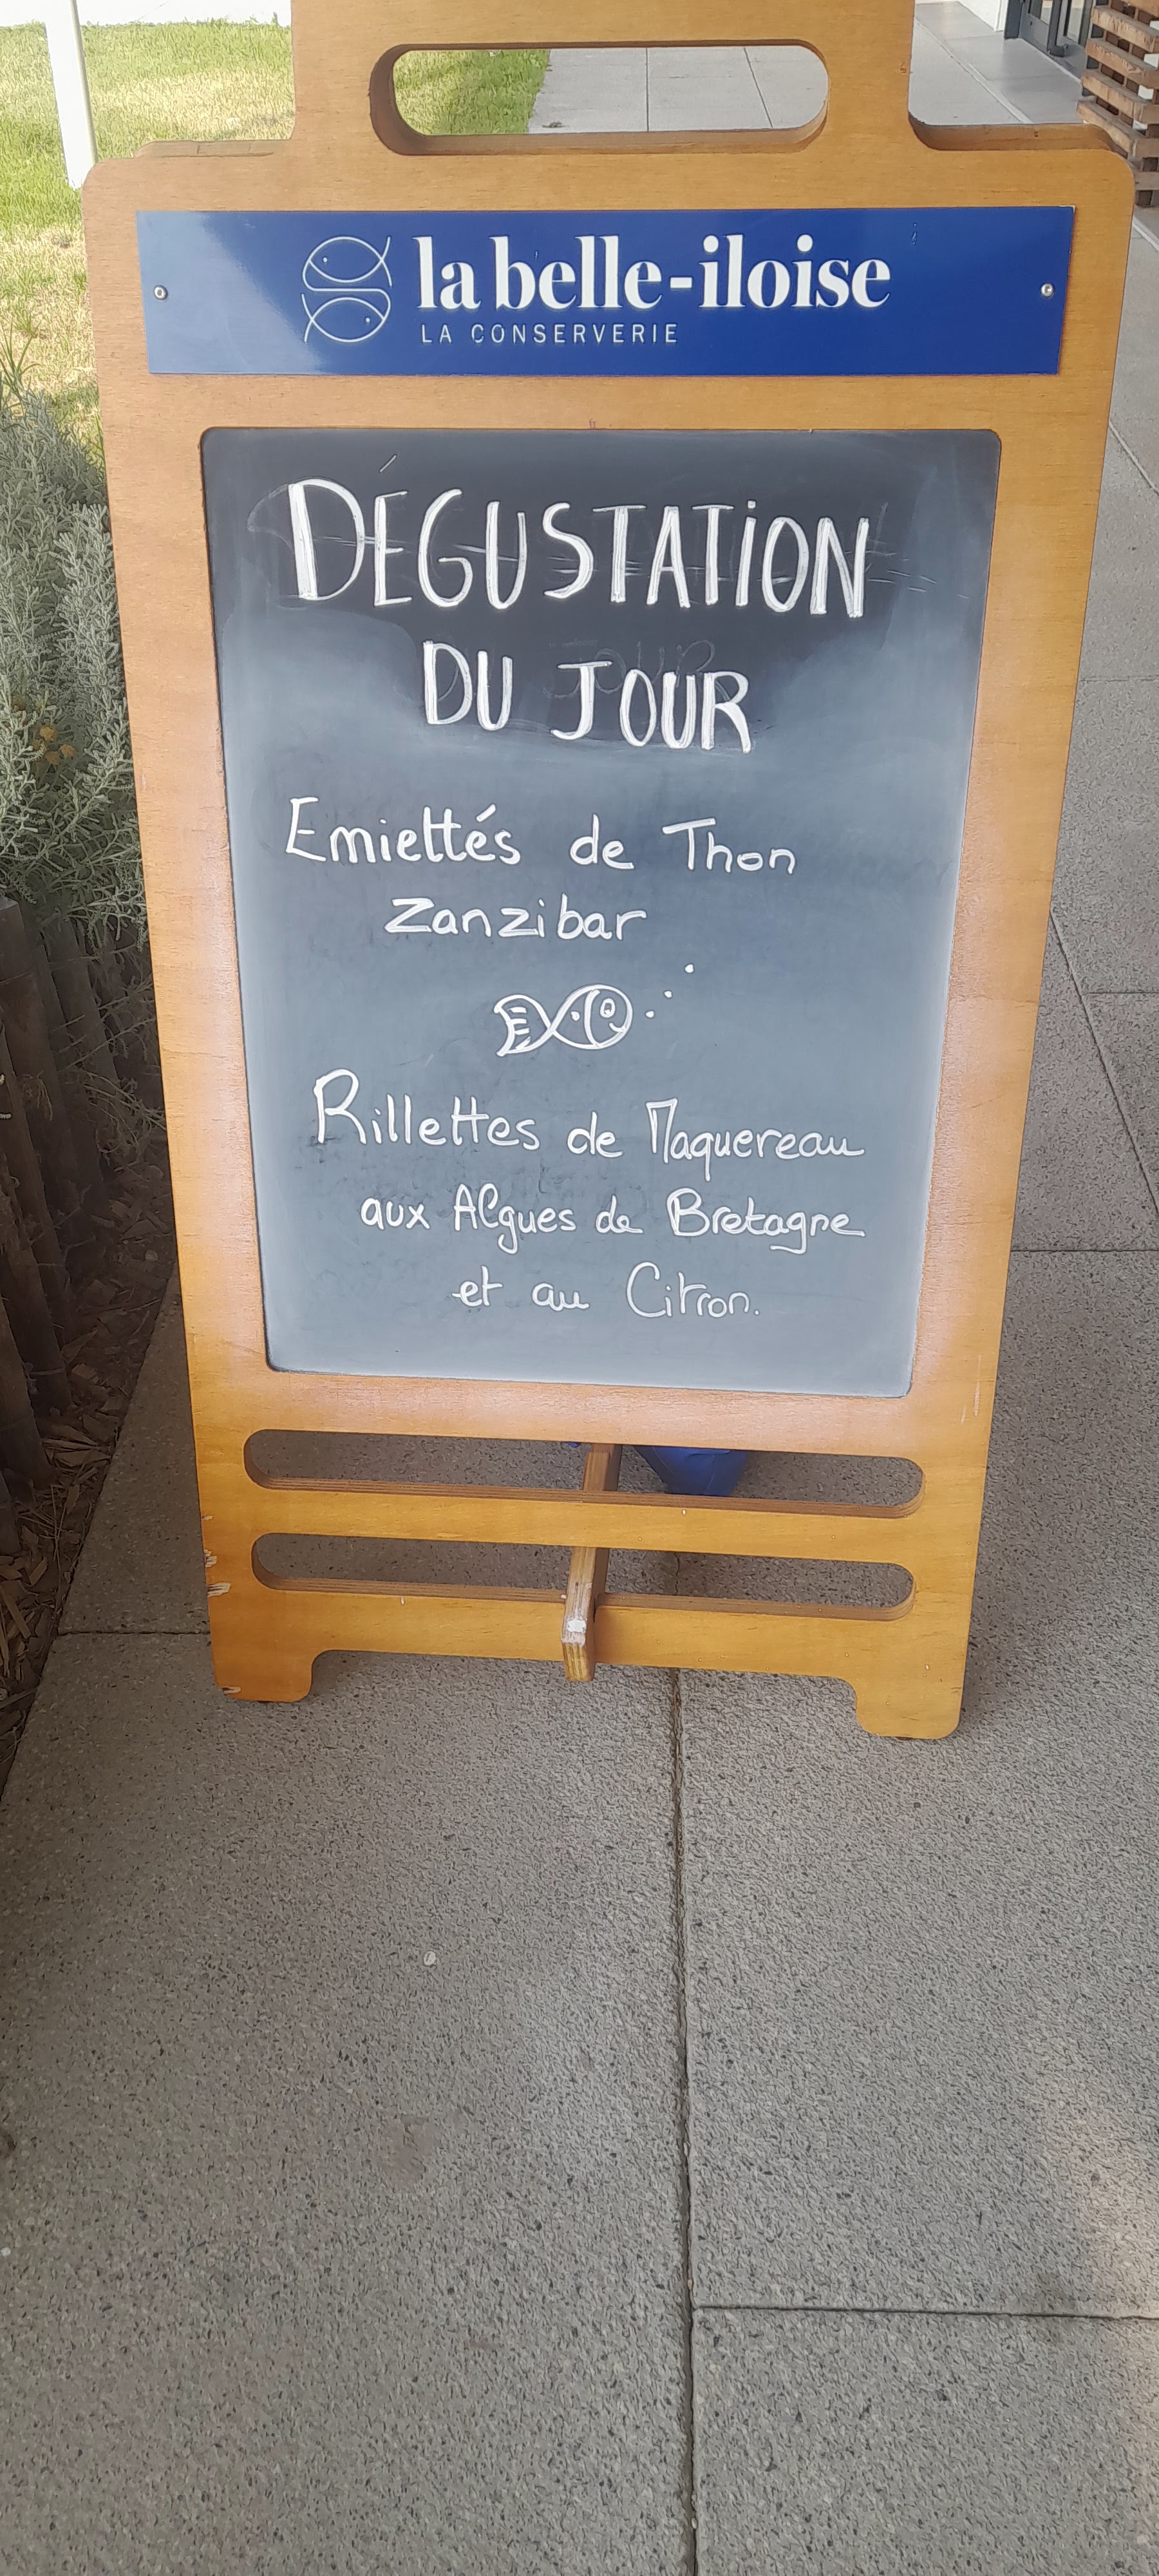 la belle-iloise
LA CONSERVERIE
DÉGUSTATION
DU JOUR
Emiettés de Thon
Zanzibar
Rillettes de Maquereau
aux Algues de Bretagne
et au Citron.